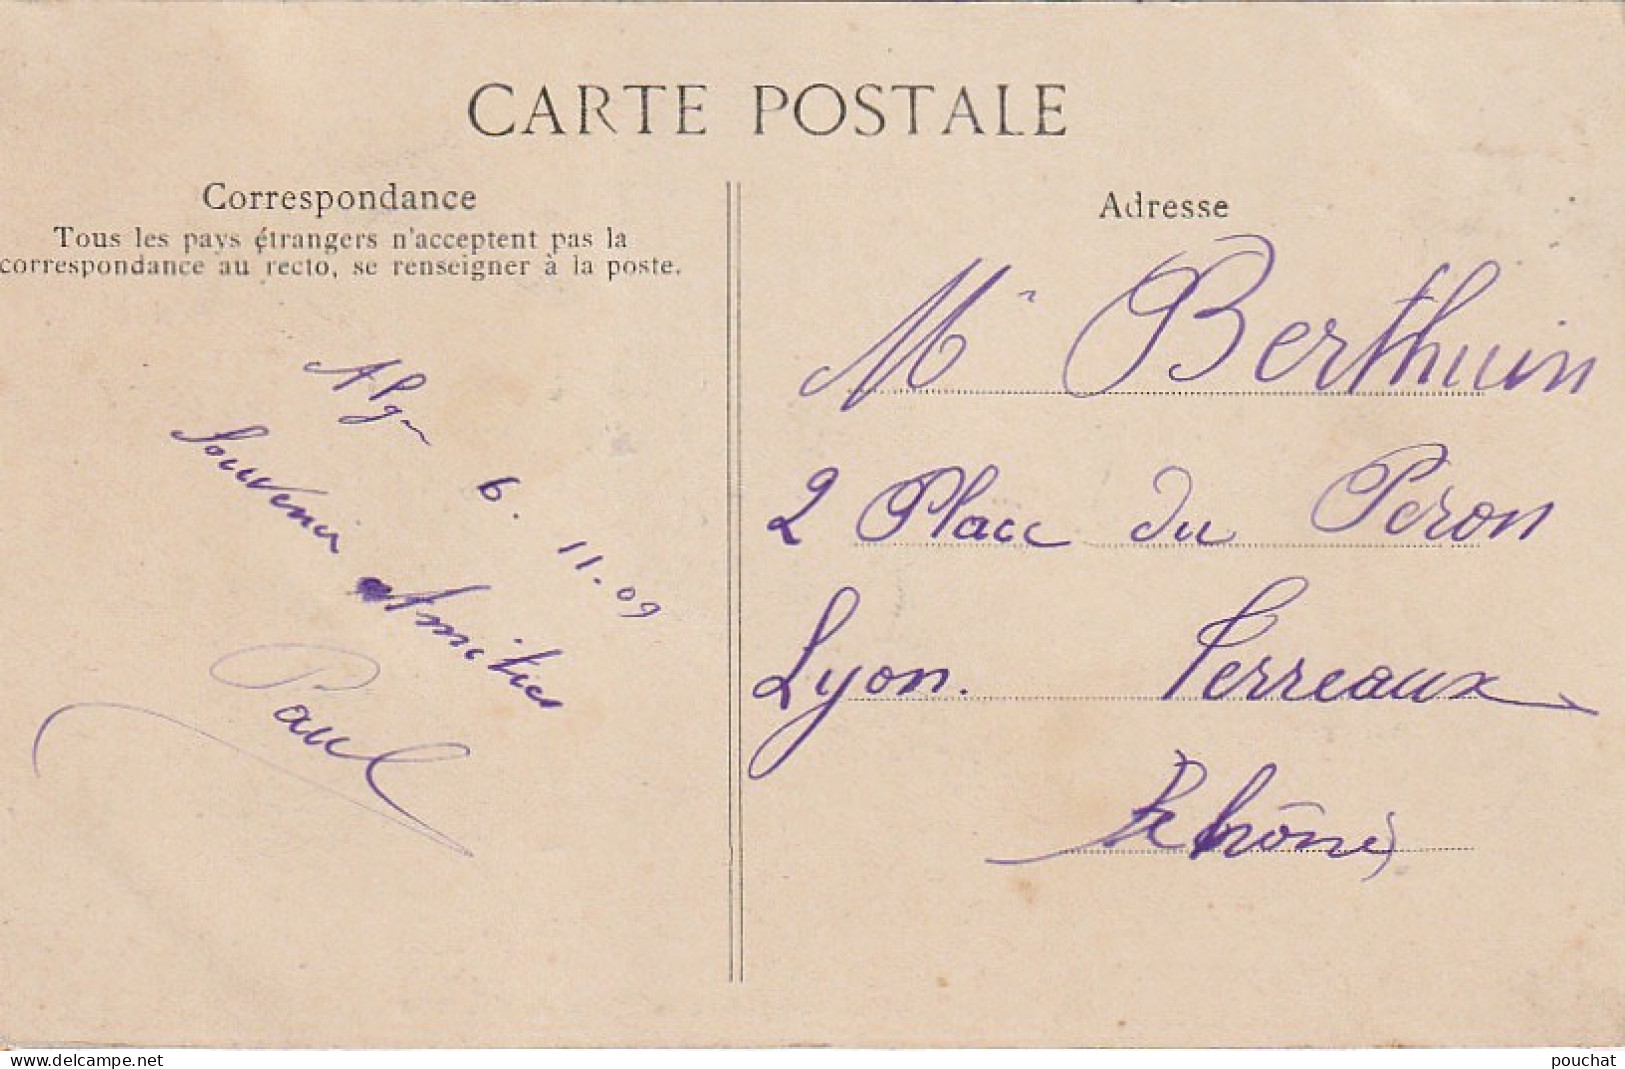 CARTE POSTALE
Correspondance
Tous les pays étrangers n'acceptent pas la
correspondance au recto, se renseigner à la poste.
6. 11-09
Souvenir Amitiés
Paul
Adresse
Mr Berthuin
2 Place du Peron
Lyon. Terreaux
Rhône
www.delcampe.net
pouchat